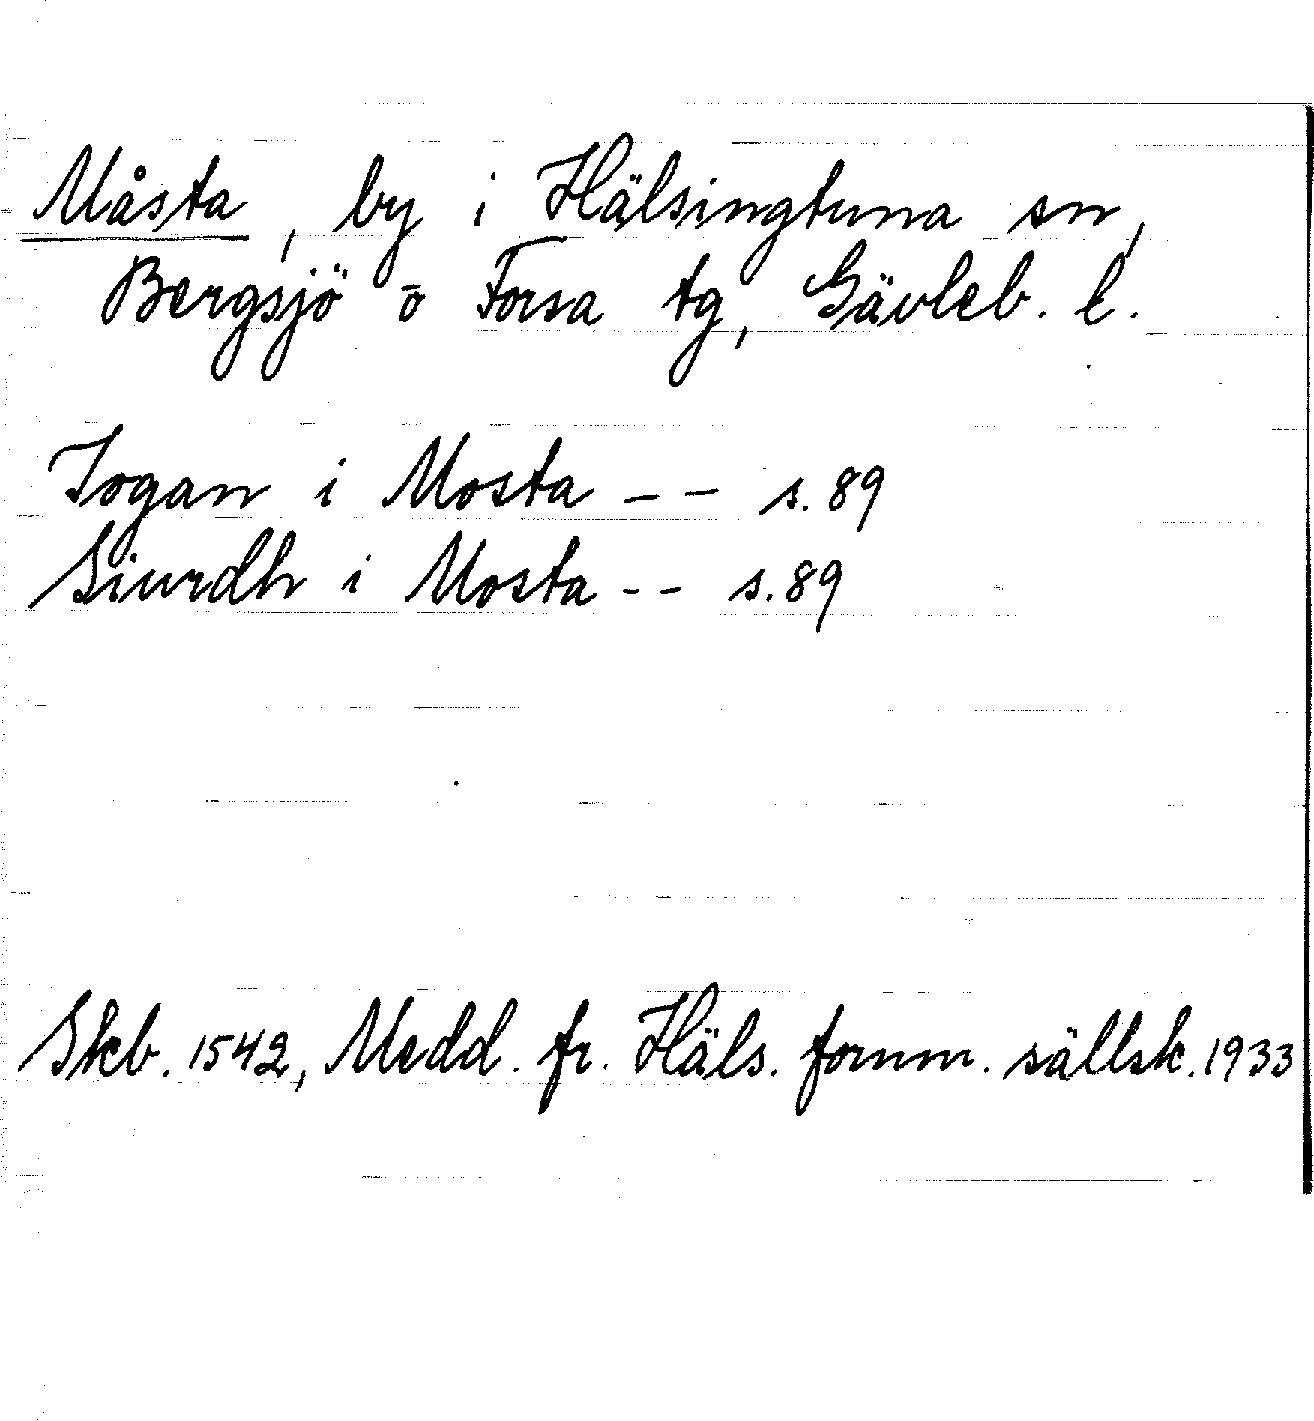 Måsta, by i Hälsingtuna sn,
Bergsjö o Forsa tg, Gävleb. l.
Jogan i Mosta -- s. 89
Siurdh i Mosta -- s. 89
Skb. 1542, Medd. fr. Häls. fornm. sällsk. 1933